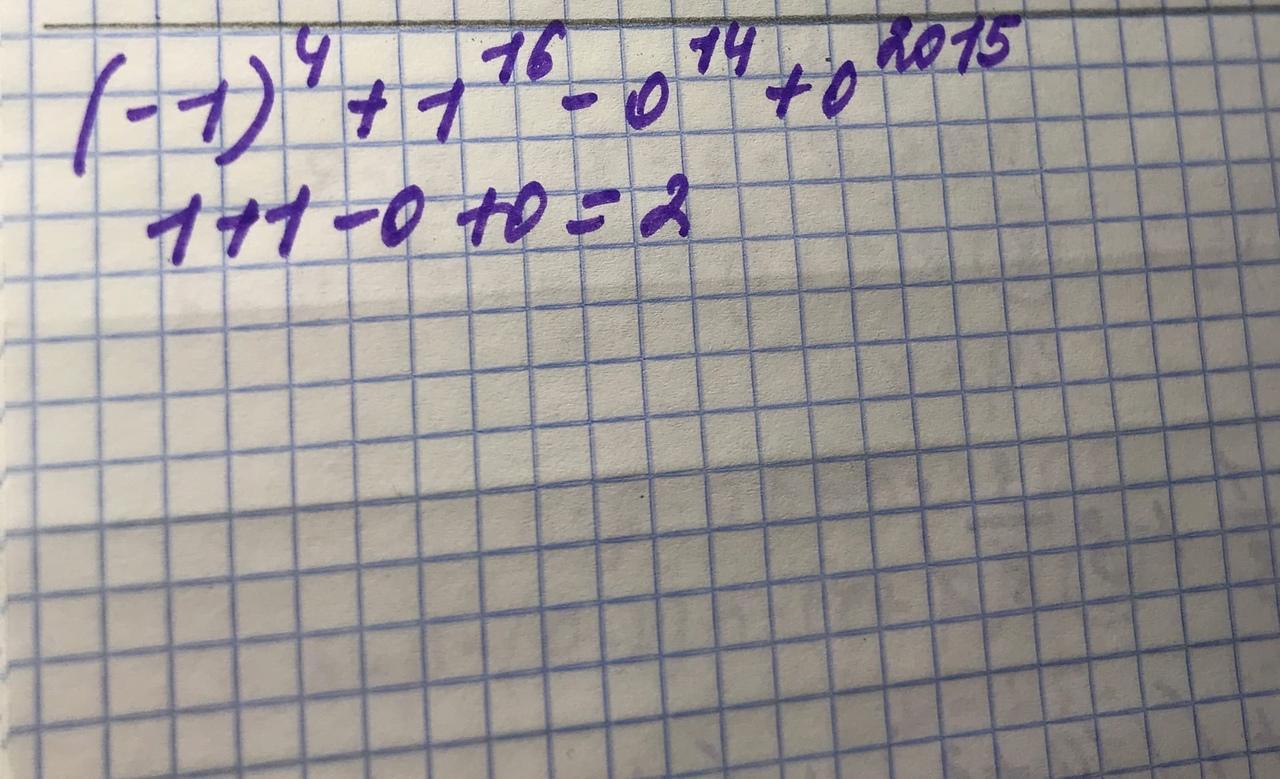 (-1)⁴ + 1¹⁶ - 0¹⁴ + 0²⁰¹⁵
1+1-0+0=2